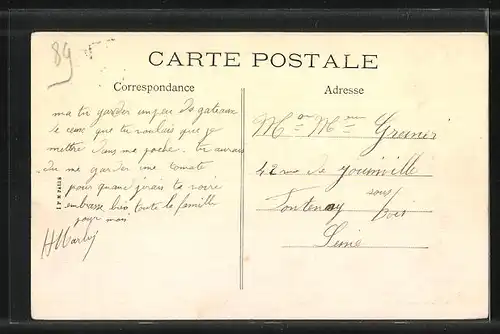 89
CARTE POSTALE
Correspondance
Adresse
ma tu garder un peu du gateau
le ceux que tu voulais que je
mettre dans ma poche. tu aurais
du me garder une tomate
pour quand j'irais te voire
embrasse bien toute la famille
pour moi
Mr Mme Grenier
42 rue de Joinville
Fontenay sous/bois
Seine